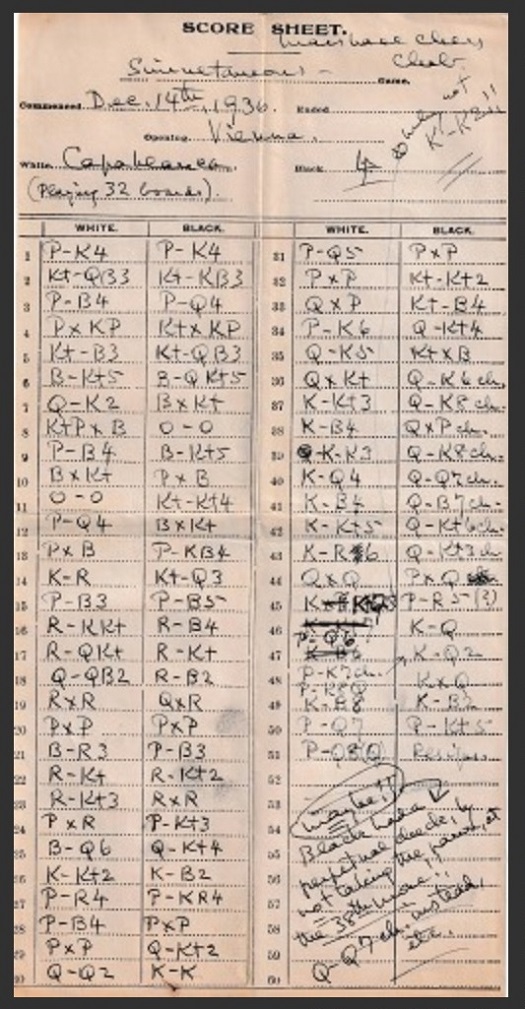 SCORE SHEET.
Chess
Club
Simultaneous - Game.
Commenced Dec. 14th, 1936. Ended
Opening Vienna.
White Capablanca Black
(Playing 32 boards).
why not
K-K2!!
WHITE. BLACK. WHITE. BLACK.
1 P-K4 P-K4 31 P-Q5 PxP
2 Kt-QB3 Kt-KB3 32 PxP Kt-Kt2
3 P-B4 P-Q4 33 QxP Kt-B4
4 PxKP KtxKP 34 P-K6 Q-Kt4
5 Kt-B3 Kt-QB3 35 Q-K5 KtxB
6 B-Kt5 B-QKt5 36 QxKt Q-K6 ch.
7 Q-K2 BxKt 37 K-Kt3 Q-K8 ch.
8 KtPxB O-O 38 K-B4 QxP ch.
9 P-B4 B-Kt5 39 K-K3 Q-K8 ch.
10 BxKt PxB 40 K-Q4 Q-Q7 ch.
11 O-O Kt-Kt4 41 K-B4 Q-B7 ch.
12 P-Q4 BxKt 42 K-Kt5 Q-Kt6 ch.
13 PxB P-KB4 43 K-R6 Q-Kt3 ch
14 K-R Kt-Q3 44 QxQ PxQ
15 P-B3 P-B5 45 P-R5 (?)
16 R-KKt R-B4 46 P-Q6 K-Q
17 R-QKt R-Kt 47 K-Q2
18 Q-QB2 R-B2 48 P-K7 ch. KxQ
19 RxR QxR 49 K-B8 K-B3
20 PxP PxP 50 P-Q7 P-Kt5
21 B-R3 P-B3 51 P-Q8(Q) Resigns.
22 R-Kt R-Kt2 52
23 R-Kt3 RxR 53 maybe!!
24 PxR P-Kt3 54 Black had a
25 B-Q6 Q-Kt4 55 perpetual check, by
26 K-Kt2 K-B2 56 not taking the pawn, at
27 P-R4 P-KR4 57 the 38th move!!
28 P-B4 PxP 58 Q-Q7 ch. instead,
29 PxP Q-Kt2 59 etc.
30 Q-Q2 K-K 60